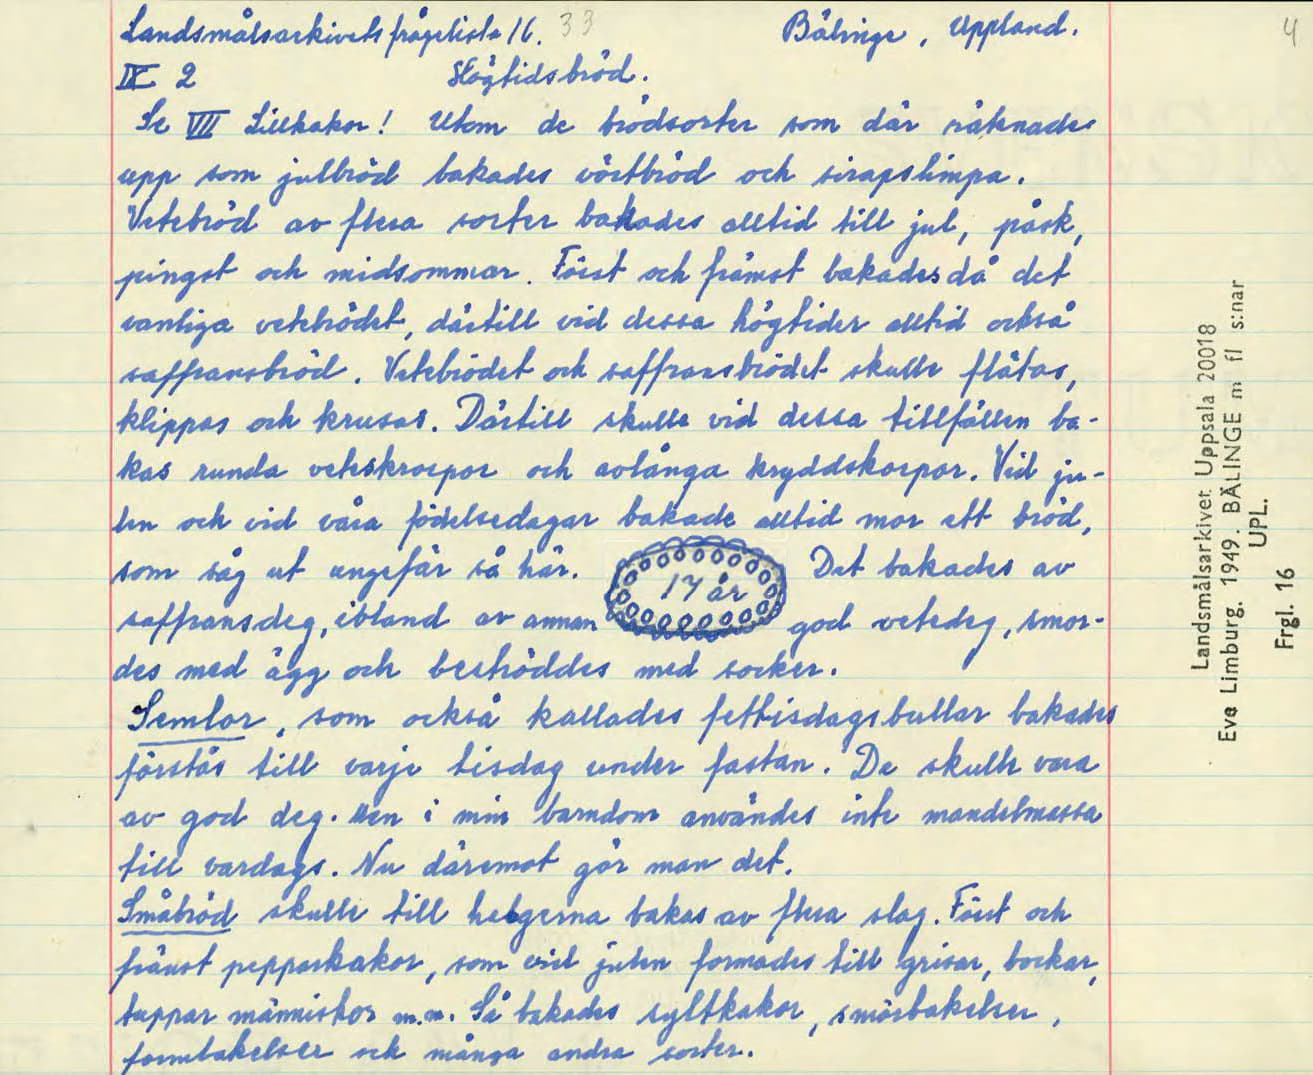 Landsmålsarkivets frågelista 16. 33 Bälinge, Uppland. 4
IX 2 Högtidsbröd.
Se VII Sillkakor! Utom de brödsorter som där räknades
upp som julbröd bakades vörtbröd och sirapslimpa.
Vetebröd av flera sorter bakades alltid till jul, påsk,
pingst och midsommar. Först och främst bakades då det
vanliga vetebrödet, därtill vid dessa högtider alltid också
saffransbröd. Vetebrödet och saffransbrödet skulle flätas,
klippas och krusas. Därtill skulle vid dessa tillfällen ba-
kas runda veteskrorpor och avlånga kryddskorpor. Vid ju-
len och vid våra födelsedagar bakade alltid mor ett bröd,
som såg ut ungefär så här. 17 år Det bakades av
saffransdeg, ibland av annan god vetedeg, smor-
des med ägg och beströddes med socker.
Semlor, som också kallades fettisdagsbullar bakades
förstås till varje tisdag under fastan. De skulle vara
av god deg. Men i min barndom användes inte mandelmassa
till vardags. Nu däremot gör man det.
Småbröd skulle till helgerna bakas av flera slag. Först och
främst pepparkakor, som vid julen formades till grisar, bockar,
tuppar människor m.m. Så bakades syltkakor, smörbakelser,
formbakelser och många andra sorter.
Landsmålsarkivet Uppsala 20018
Eva Limburg. 1949. BÄLINGE m fl s:nar
UPL.
Frgl. 16